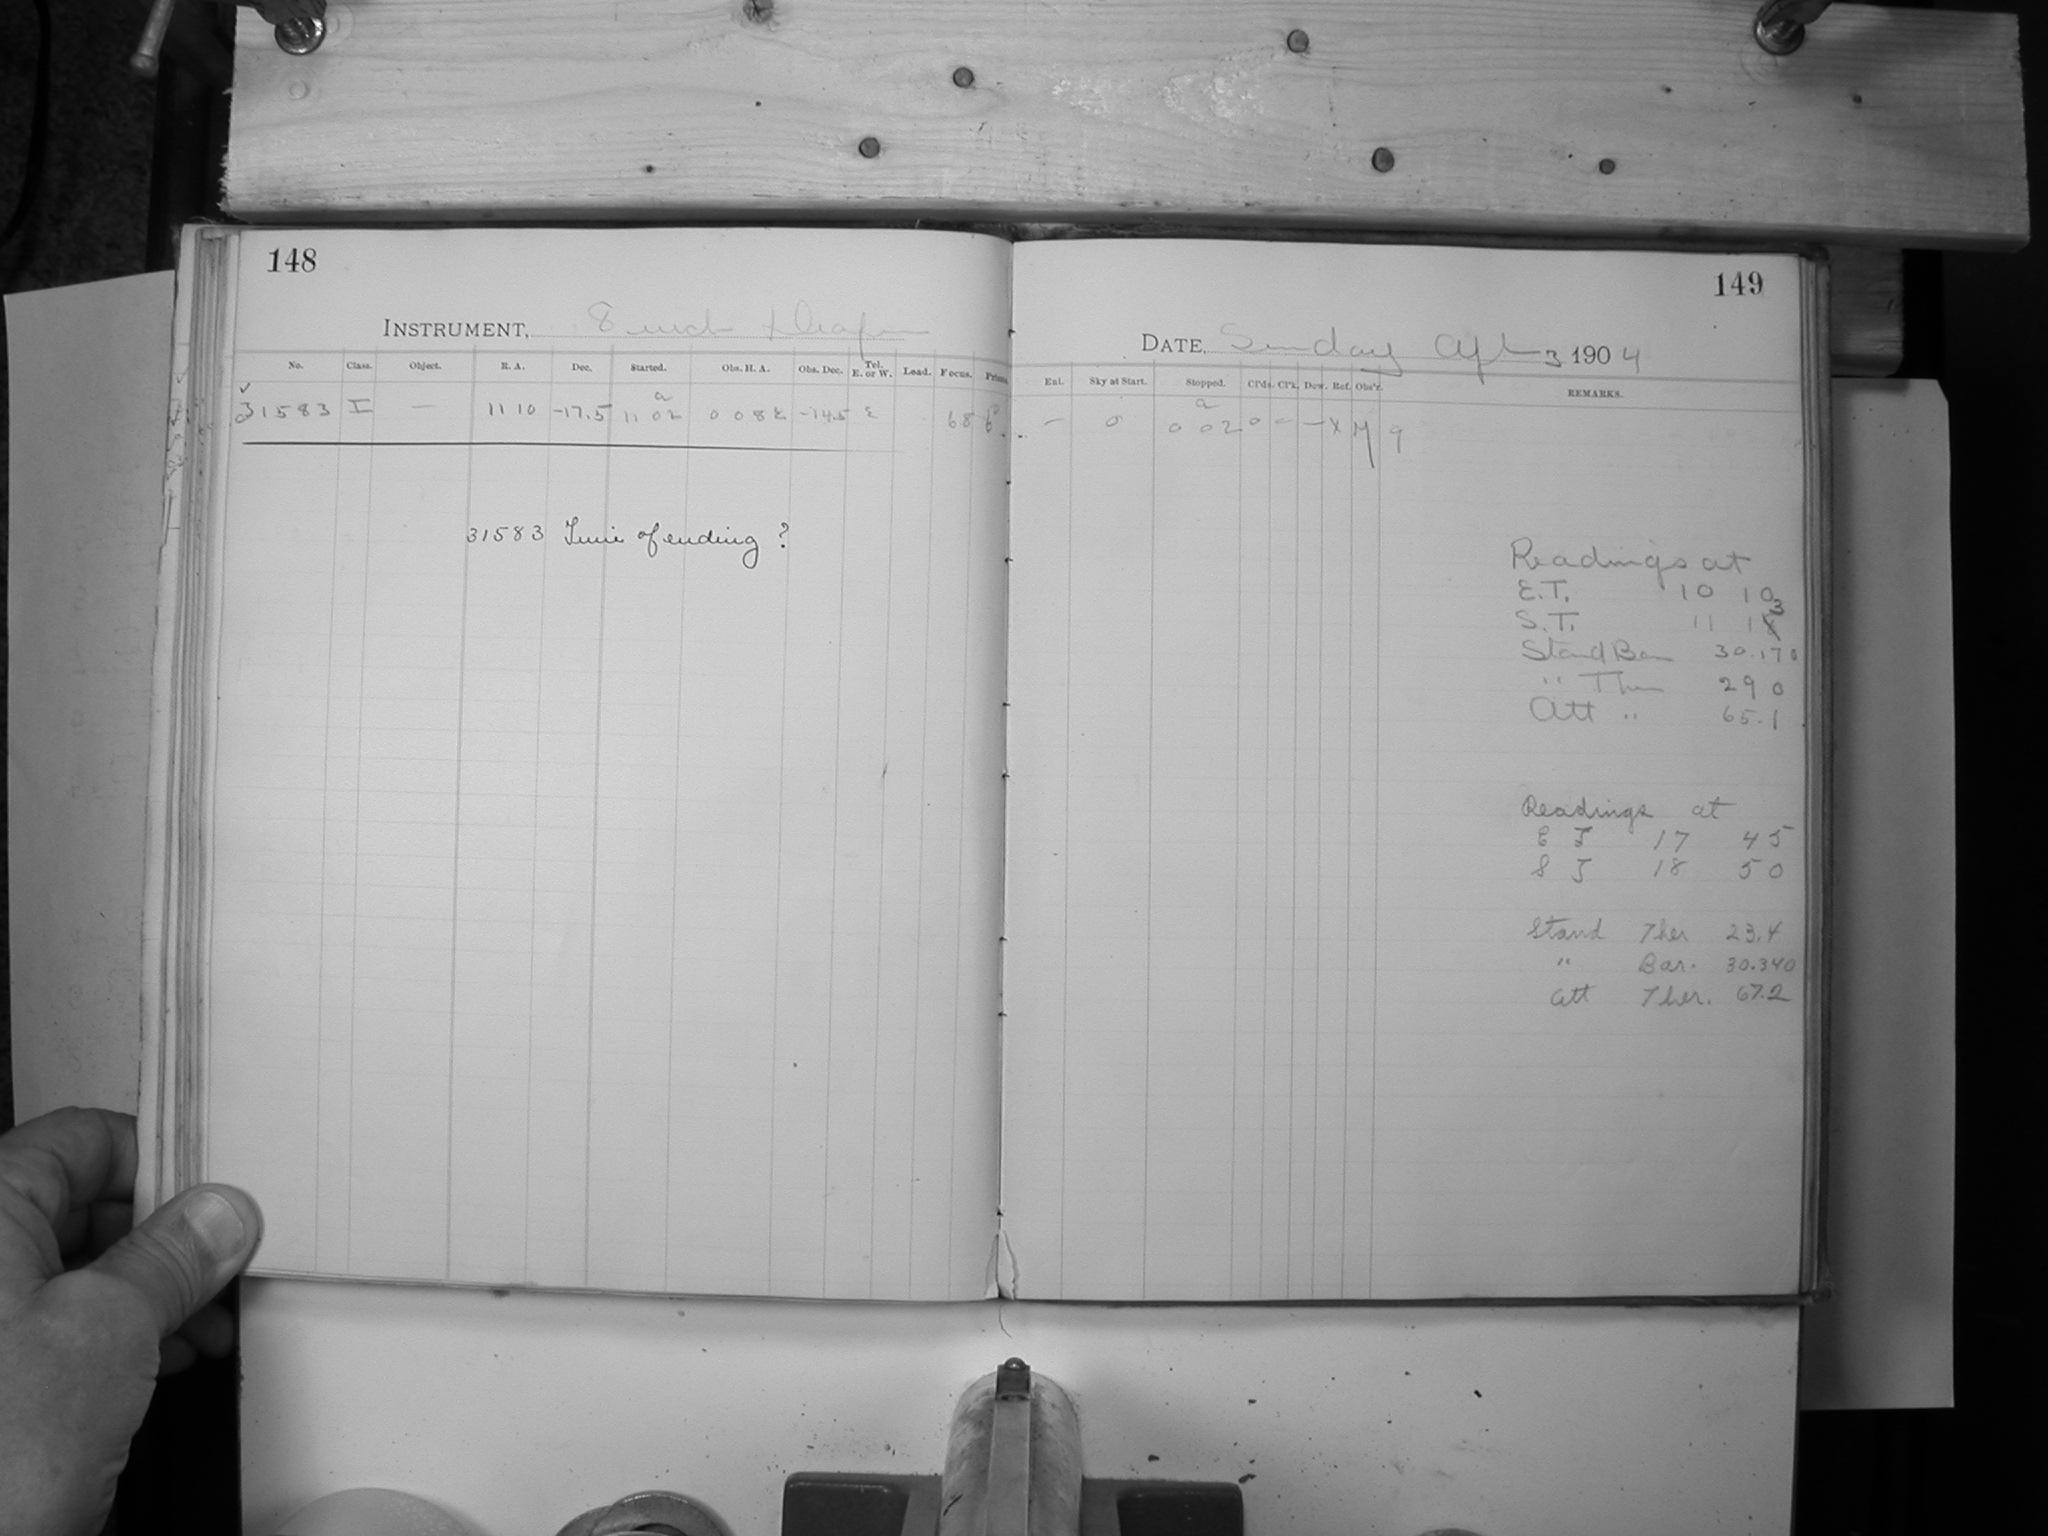 148
INSTRUMENT, 8 inch Draper
No. Class. Object. R. A. Dec. Started. Obs. H. A. Obs. Dec. Tel. E. or W. Load. Focus. Prisms.
a
31583 I — 11 10 -17.5 11 02 0 08 E -14.5 E 68
31583 Time of ending ?
149
DATE, Sunday Apl 3 1904
Enl. Sky at Start. Stopped. Cl'ds. Cl'k. Dew. Ref. Obs'r. REMARKS.
a
— 0 0 02 0 — — X M 9
Readings at
E.T. 10 10
S.T. 11 13
Stand Bar 30.170
" Ther 29 0
Att " 65.1
Readings at
E T 17 45
S T 18 50
Stand Ther 23.4
" Bar. 30.340
Att Ther. 67.2